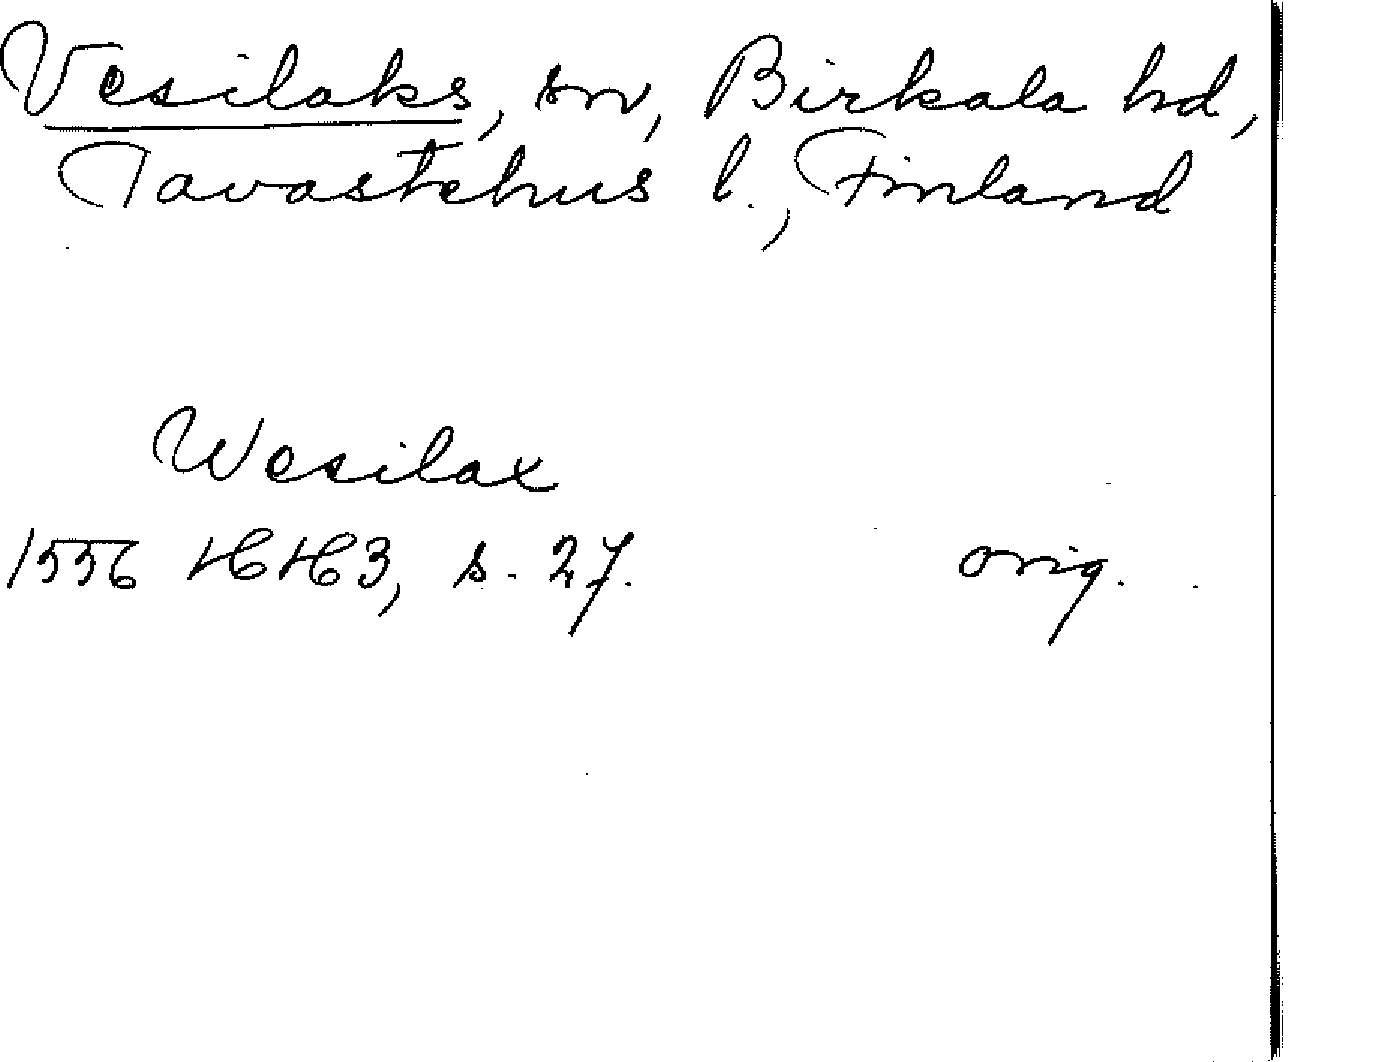 Vesilaks, sn, Birkala hd,
Tavastehus l., Finland
Wesilax
1556 HH3, s. 27.
orig.